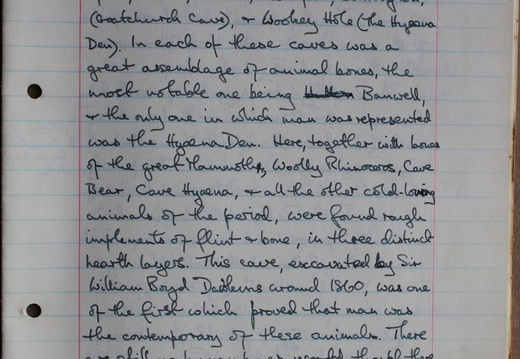 (Goatchurch Cave), + Wookey Hole (the Hyaena
Den). In each of these caves was a
great assemblage of animal bones, the
most notable one being Banwell,
+ the only one in which man was represented
was the Hyaena Den. Here, together with bones
of the great Mammoths, Woolly Rhinoceros, Cave
Bear, Cave Hyaena, + all the other cold-loving
animals of the period, were found rough
implements of flint + bone, in three distinct
hearth layers. This cave, excavated by Sir
William Boyd Dawkins around 1860, was one
of the first which proved that man was
the contemporary of these animals. There